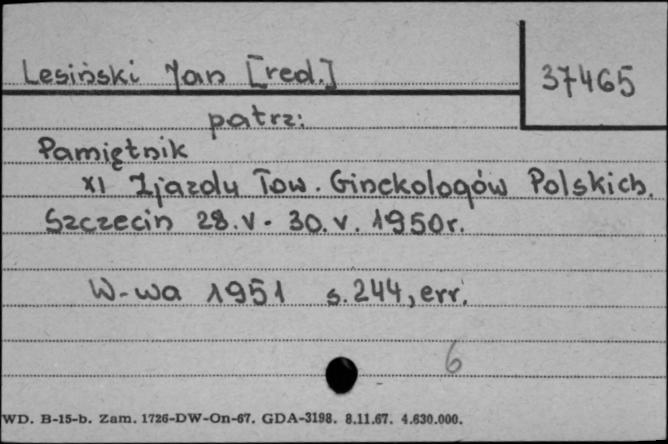 Lesiński Jan [red.]
37465
patrz:
Pamiętnik
XI Zjazdu Tow. Ginekologów Polskich.
Szczecin 28.V - 30.V. 1950r.
W-wa 1951 s.244, err.
6
WD. B-15-b. Zam. 1726-DW-On-67. GDA-3198. 8.11.67. 4.630.000.